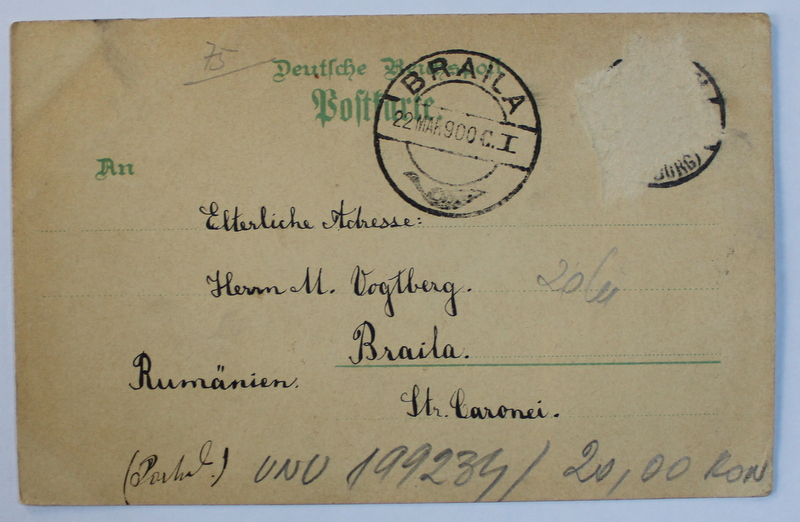 75
Deutsche Reichspost
Postkarte.
BRAILA
22 MAR 900 C. I
BURG)
An
Elterliche Adresse:
Herrn M. Vogtberg.
20 lei
Braila.
Rumänien.
Str. Caronei.
UNU 199234 / 20,00 RON